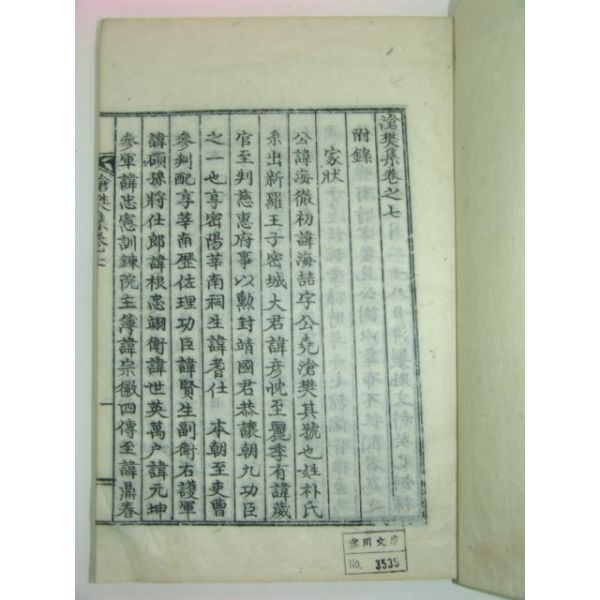 滄樊集卷之七
附錄
家狀
公諱海徵初諱海喆字公堯滄樊其號也姓朴氏
系出新羅王子密城大君諱彦忱至麗季有諱葳
官至判慈惠府事以勲封靖國君恭讓朝九功臣
之一也享密陽莘南祠生諱耆仕 本朝至吏曹
參判配享莘南歷佐理功臣諱賢生副衛右護軍
諱碩孫將仕郎諱根忠翊衛諱世英萬戶諱元坤
參軍諱忠憲訓鍊院主簿諱宗徽四傳至諱鼎春
滄樊集卷七
文庫
No. 3535